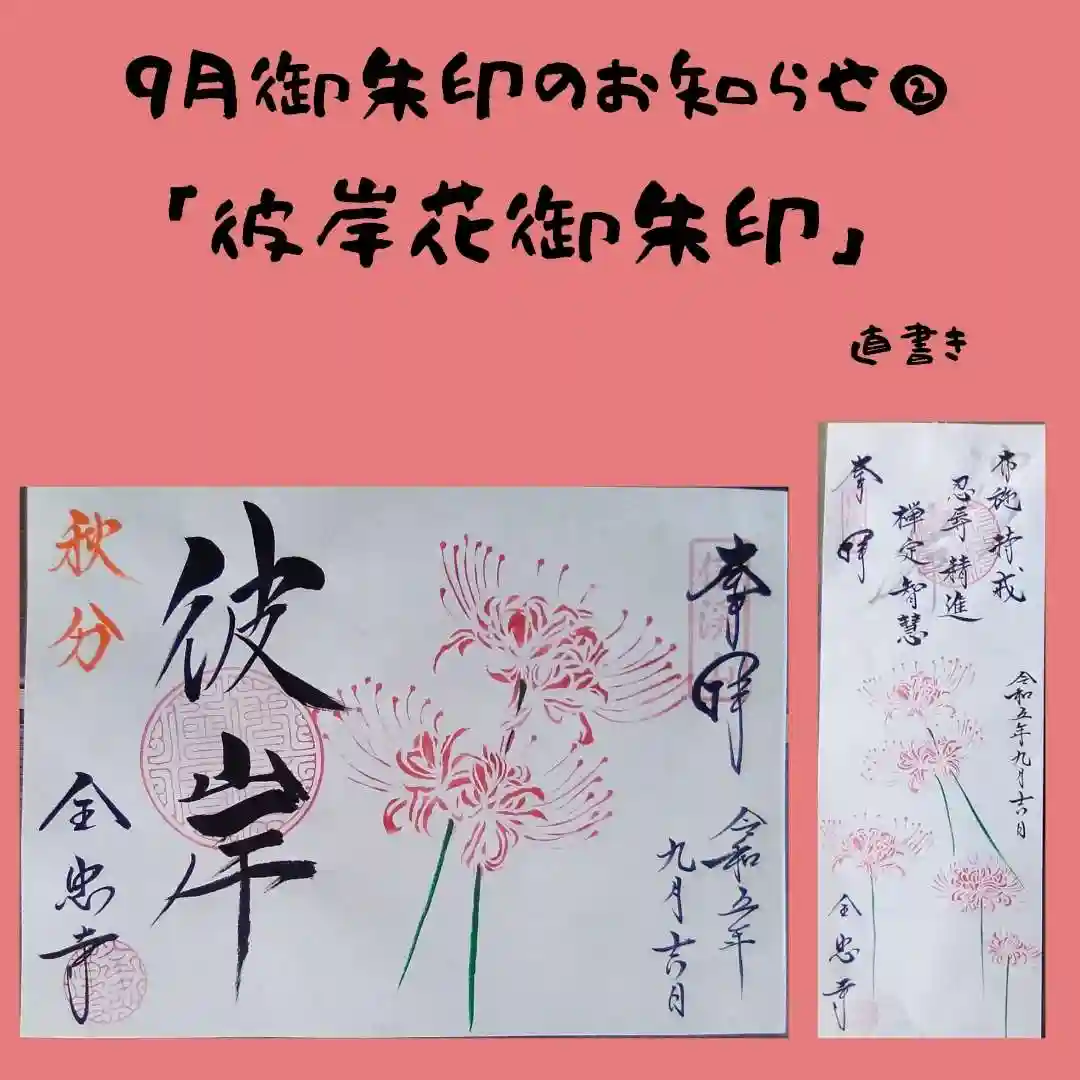 9月御朱印のお知らせ②
「彼岸花御朱印」
直書き
奉拝
令和五年
九月吉日
彼岸
秋分
全忠寺
布施 持戒
忍辱 精進
禅定 智慧
奉拝
令和五年九月吉日
全忠寺